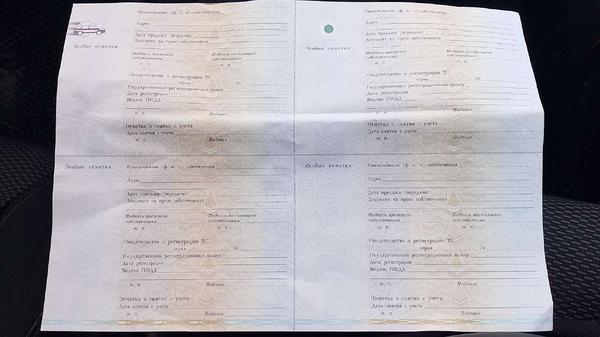 Наименование (ф. и. о.) собственника
Адрес
Дата продажи (передачи)
Документ на право собственности
Особые отметки
Подпись прежнего собственника
Подпись настоящего собственника
М. П.
М. П.
Свидетельство о регистрации ТС
серия №
Государственный регистрационный номер
Дата регистрации
Выдано ГИБДД
М. П. Подпись
Отметка о снятии с учета
Дата снятия с учета
М. П. Подпись
Наименование (ф. и. о.) собственника
Адрес
Дата продажи (передачи)
Документ на право собственности
Особые отметки
Подпись прежнего собственника
Подпись настоящего собственника
М. П.
М. П.
Свидетельство о регистрации ТС
серия №
Государственный регистрационный номер
Дата регистрации
Выдано ГИБДД
М. П. Подпись
Отметка о снятии с учета
Дата снятия с учета
М. П. Подпись
Особые отметки
Наименование (ф. и. о.) собственника
Адрес
Дата продажи (передачи)
Документ на право собственности
Подпись прежнего собственника
Подпись настоящего собственника
М. П.
М. П.
Свидетельство о регистрации ТС
серия №
Государственный регистрационный номер
Дата регистрации
Выдано ГИБДД
М. П. Подпись
Отметка о снятии с учета
Дата снятия с учета
М. П. Подпись
Особые отметки
Наименование (ф. и. о.) собственника
Адрес
Дата продажи (передачи)
Документ на право собственности
Подпись прежнего собственника
Подпись настоящего собственника
М. П.
М. П.
Свидетельство о регистрации ТС
серия №
Государственный регистрационный номер
Дата регистрации
Выдано ГИБДД
М. П. Подпись
Отметка о снятии с учета
Дата снятия с учета
М. П. Подпись